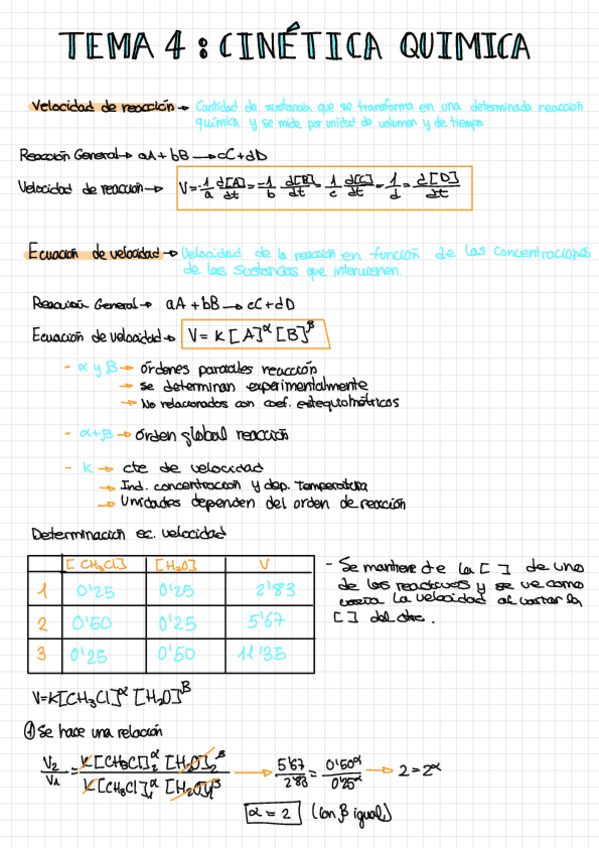 TEMA 4 : CINÉTICA QUIMICA
Velocidad de reacción → Cantidad de sustancia que se transforma en una determinada reacción
química y se mide por unidad de volumen y de tiempo
Reacción General → aA + bB → cC + dD
Velocidad de reacción → V = -1/a d[A]/dt = -1/b d[B]/dt = 1/c d[C]/dt = 1/d = d[D]/dt
Ecuación de velocidad → Velocidad de la reacción en función de las concentraciones
de las sustancias que intervienen.
Reacción General → aA + bB → cC + dD
Ecuación de velocidad → V = K [A]^α [B]^β
- α y β → órdenes parciales reacción
→ se determinan experimentalmente
→ No relacionados con coef. estequiométricos
- α+β → órden global reacción
- K → cte de velocidad
→ Ind. concentración y dep. temperatura
→ Unidades dependen del orden de reacción
Determinación ec. velocidad
[CH3Cl] [H2O] V
1 0'25 0'25 2'83
2 0'50 0'25 5'67
3 0'25 0'50 11'35
- Se mantiene cte la [ ] de uno
de los reactivos y se ve como
varía la velocidad al variar la
[ ] del otro.
V=K[CH3Cl]^α [H2O]^β
① Se hace una relación
V2/V1 = K[CH3Cl]2^α [H2O]2^β / K[CH3Cl]1^α [H2O]1^β → 5'67/2'83 = 0'50^α/0'25^α → 2 = 2^α
α = 2 (con β igual)